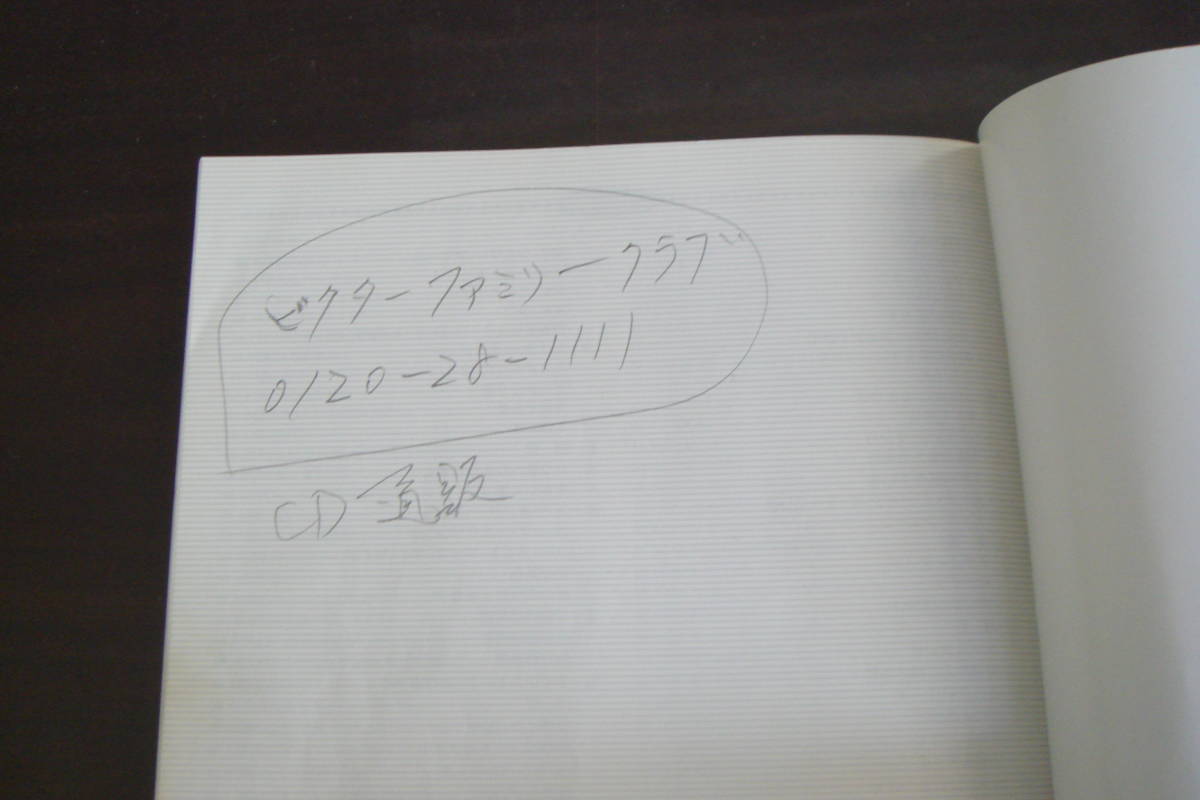 ビクターファミリークラブ
0120-28-1111
CD通販